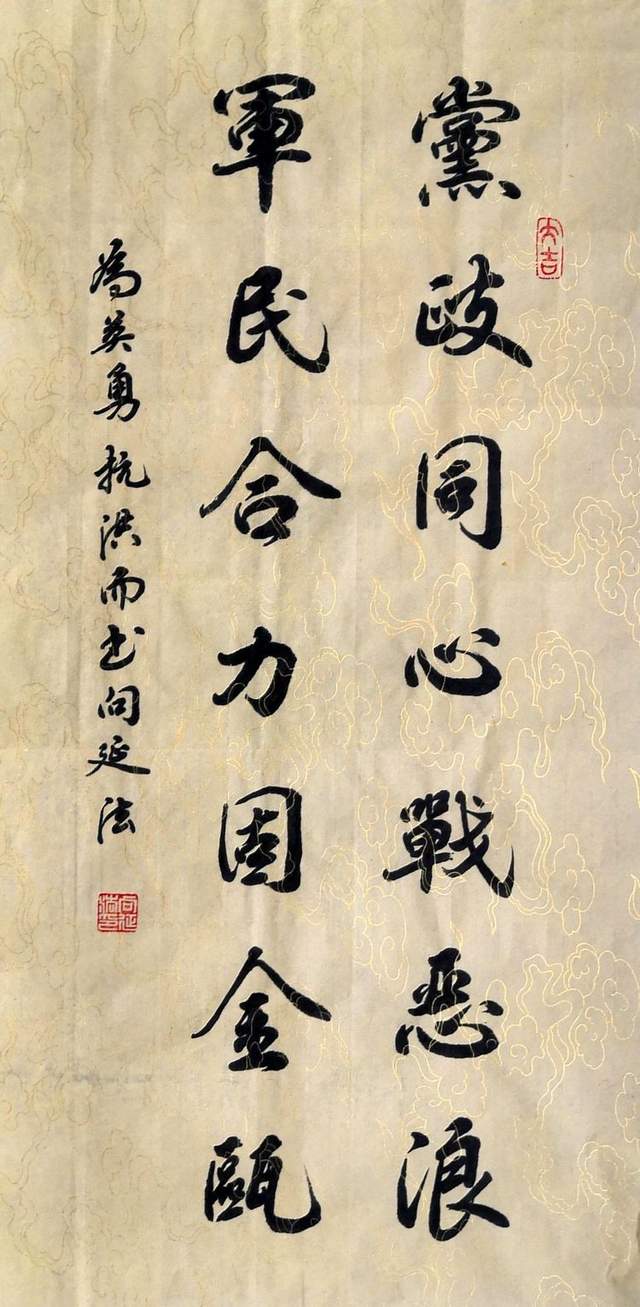 大吉
黨政同心戰恶浪
軍民合力固金甌
為英勇抗洪而书向延法